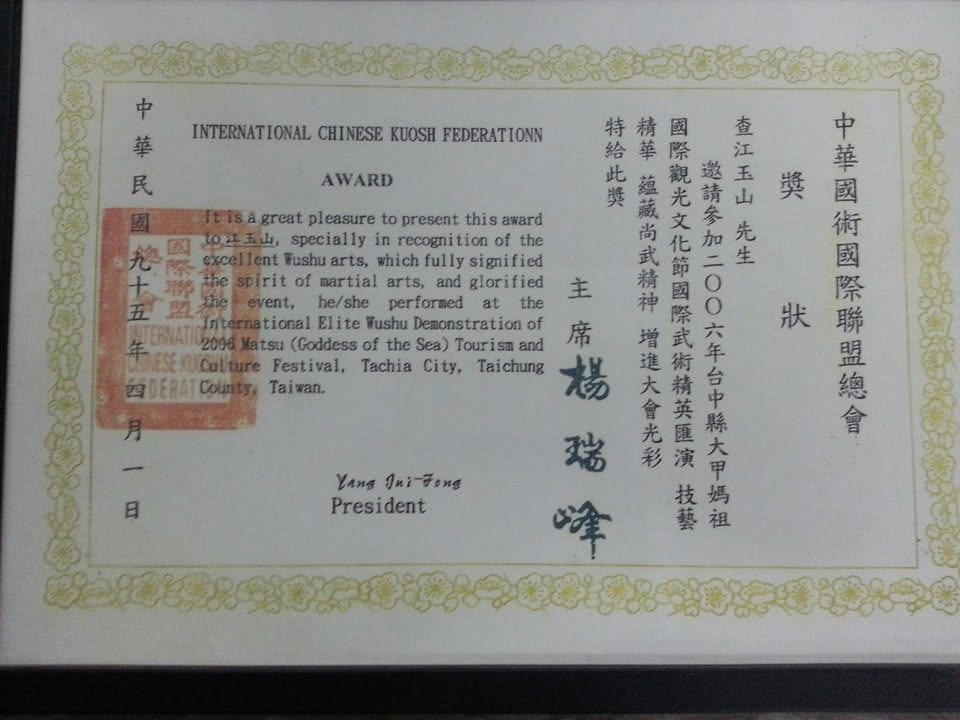 中華國術國際聯盟總會
獎狀
查江玉山 先生
邀請參加二〇〇六年台中縣大甲媽祖
國際觀光文化節國際武術精英匯演 技藝
精華 蘊藏尚武精神 增進大會光彩
特給此獎
主席 楊瑞峰
INTERNATIONAL CHINESE KUOSH FEDERATIONN
AWARD
It is a great pleasure to present this award
to 江玉山, specially in recognition of the
excellent Wushu arts, which fully signified
the spirit of martial arts, and glorified
the event, he/she performed at the
International Elite Wushu Demonstration of
2006 Matsu (Goddess of the Sea) Tourism and
Culture Festival, Tachia City, Taichung
County, Taiwan.
Yang Jui-Fong
President
中華民國九十五年四月一日
國際聯盟
總會
INTERNATIONAL
CHINESE KUOSHU
FEDERATION